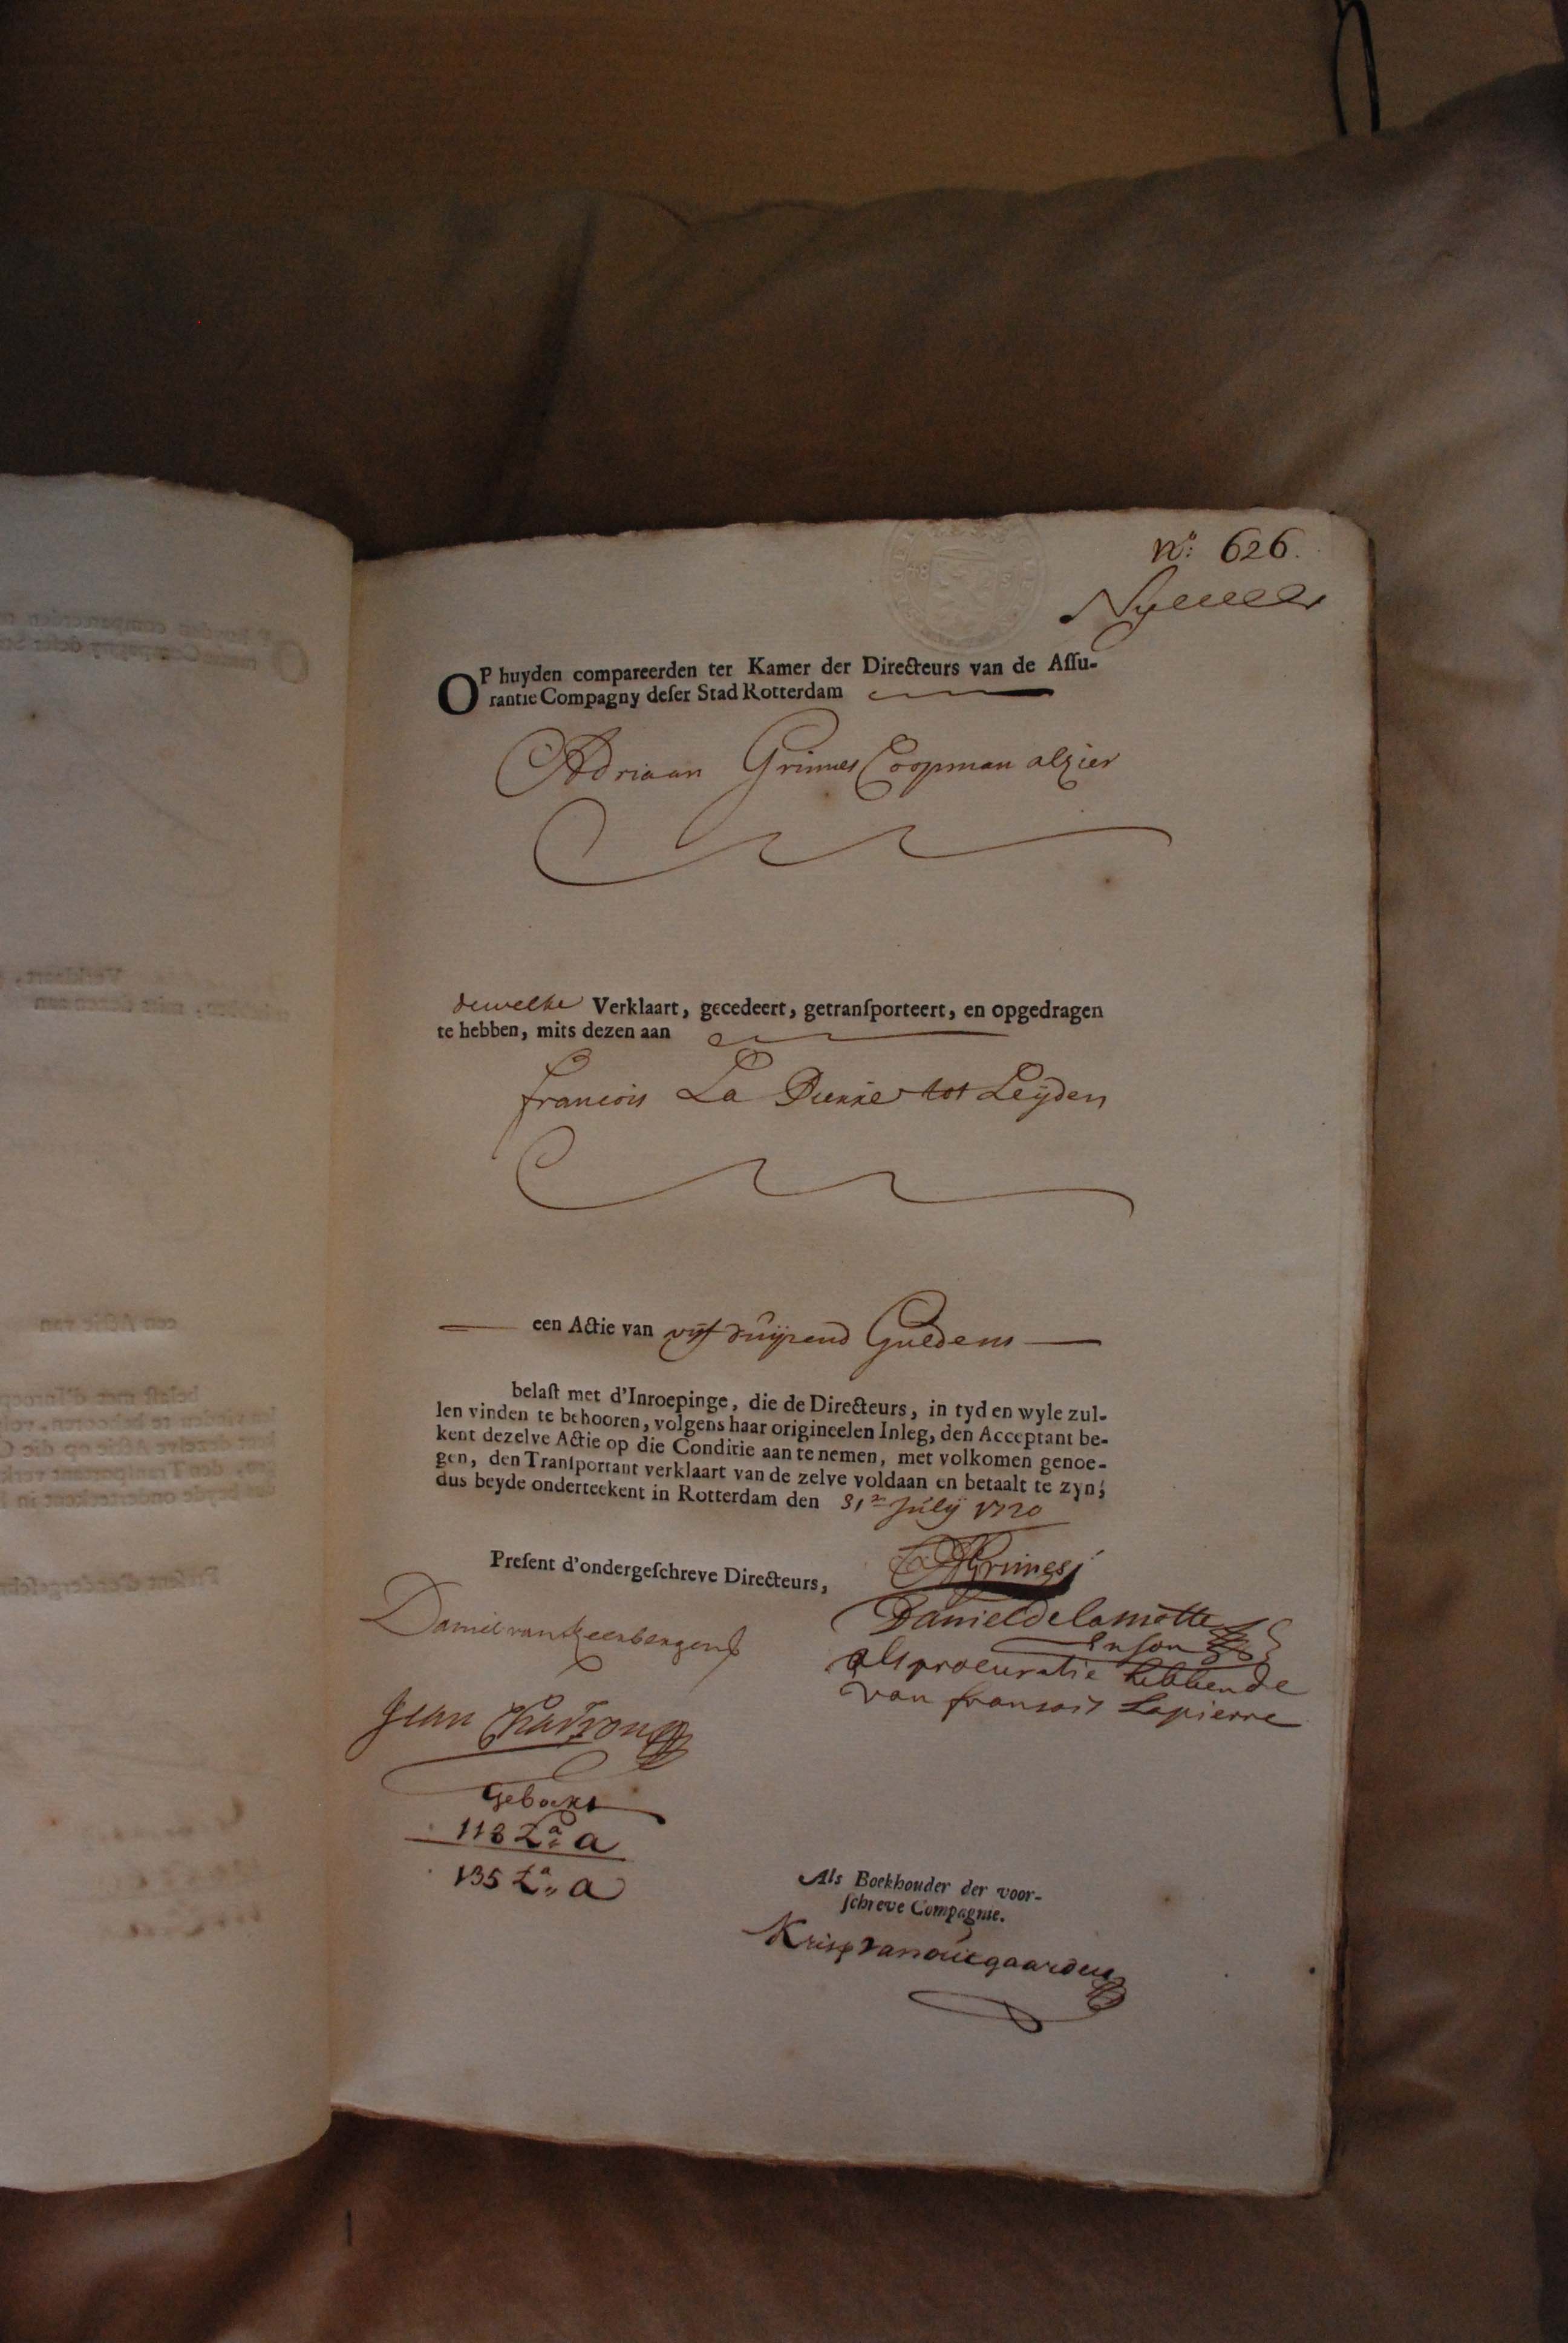 No: 626.
OP huyden compareerden ter Kamer der Directeurs van de Aſſu-
rantie Compagny deſer Stad Rotterdam
Adriaan Grimes Coopman alhier
dewelke Verklaart, gecedeert, getranſporteert, en opgedragen
te hebben, mits dezen aan
francois La Pierre tot Leÿden
een Actie van vijf duijzend Guldens
belaſt met d'Inroepinge, die de Directeurs, in tyd en wyle zul-
len vinden te behooren, volgens haar origineelen Inleg, den Acceptant be-
kent dezelve Actie op die Conditie aan te nemen, met volkomen genoe-
gen, den Tranſportant verklaart van de zelve voldaan en betaalt te zyn;
dus beyde onderteekent in Rotterdam den 31en Julij 1720
Preſent d'ondergeſchreve Directeurs,
A Grimes
Daniel van
Daniel de la motte
en son
als procuratie hebbende
van fransois Lapierre
Jean
Geboekt
118 La: a
135 La: a
Als Boekhouder der voor-
ſchreve Compagnie.